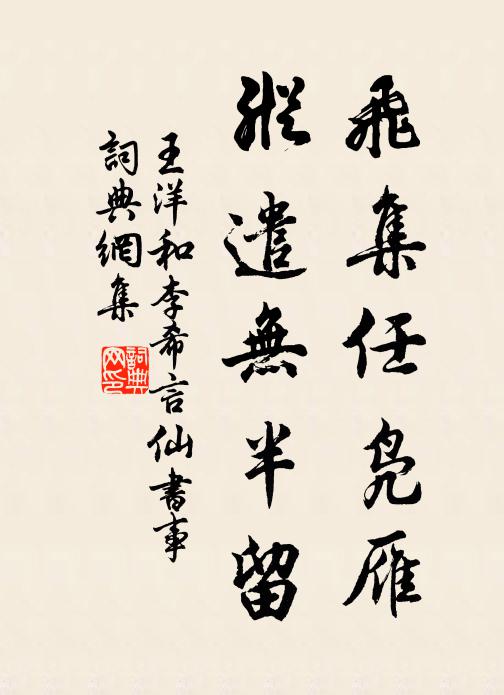 飛集任鳧雁
縱遣無半留
王洋和李希言仙書事
詞典網集
詞典网印